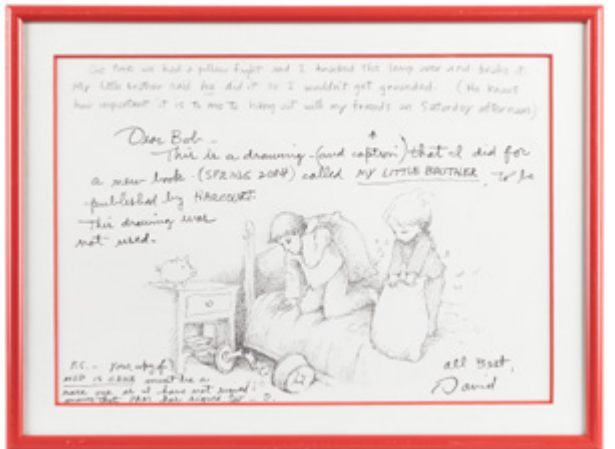 One time we had a pillow fight and I knocked the lamp over and broke it.
My little brother said he did it so I wouldn't get grounded. (He knows
how important it is to me to hang out with my friends on Saturday afternoon)
Dear Bob-
This is a drawing-(and caption) that I did for
a new book-(SPRING 2004) called MY LITTLE BROTHER, to be
published by HARCOURT.
This drawing was
not used-
P.S. - Your copy of
must be a
rare one as I have not signed
has signed
all Best,
David